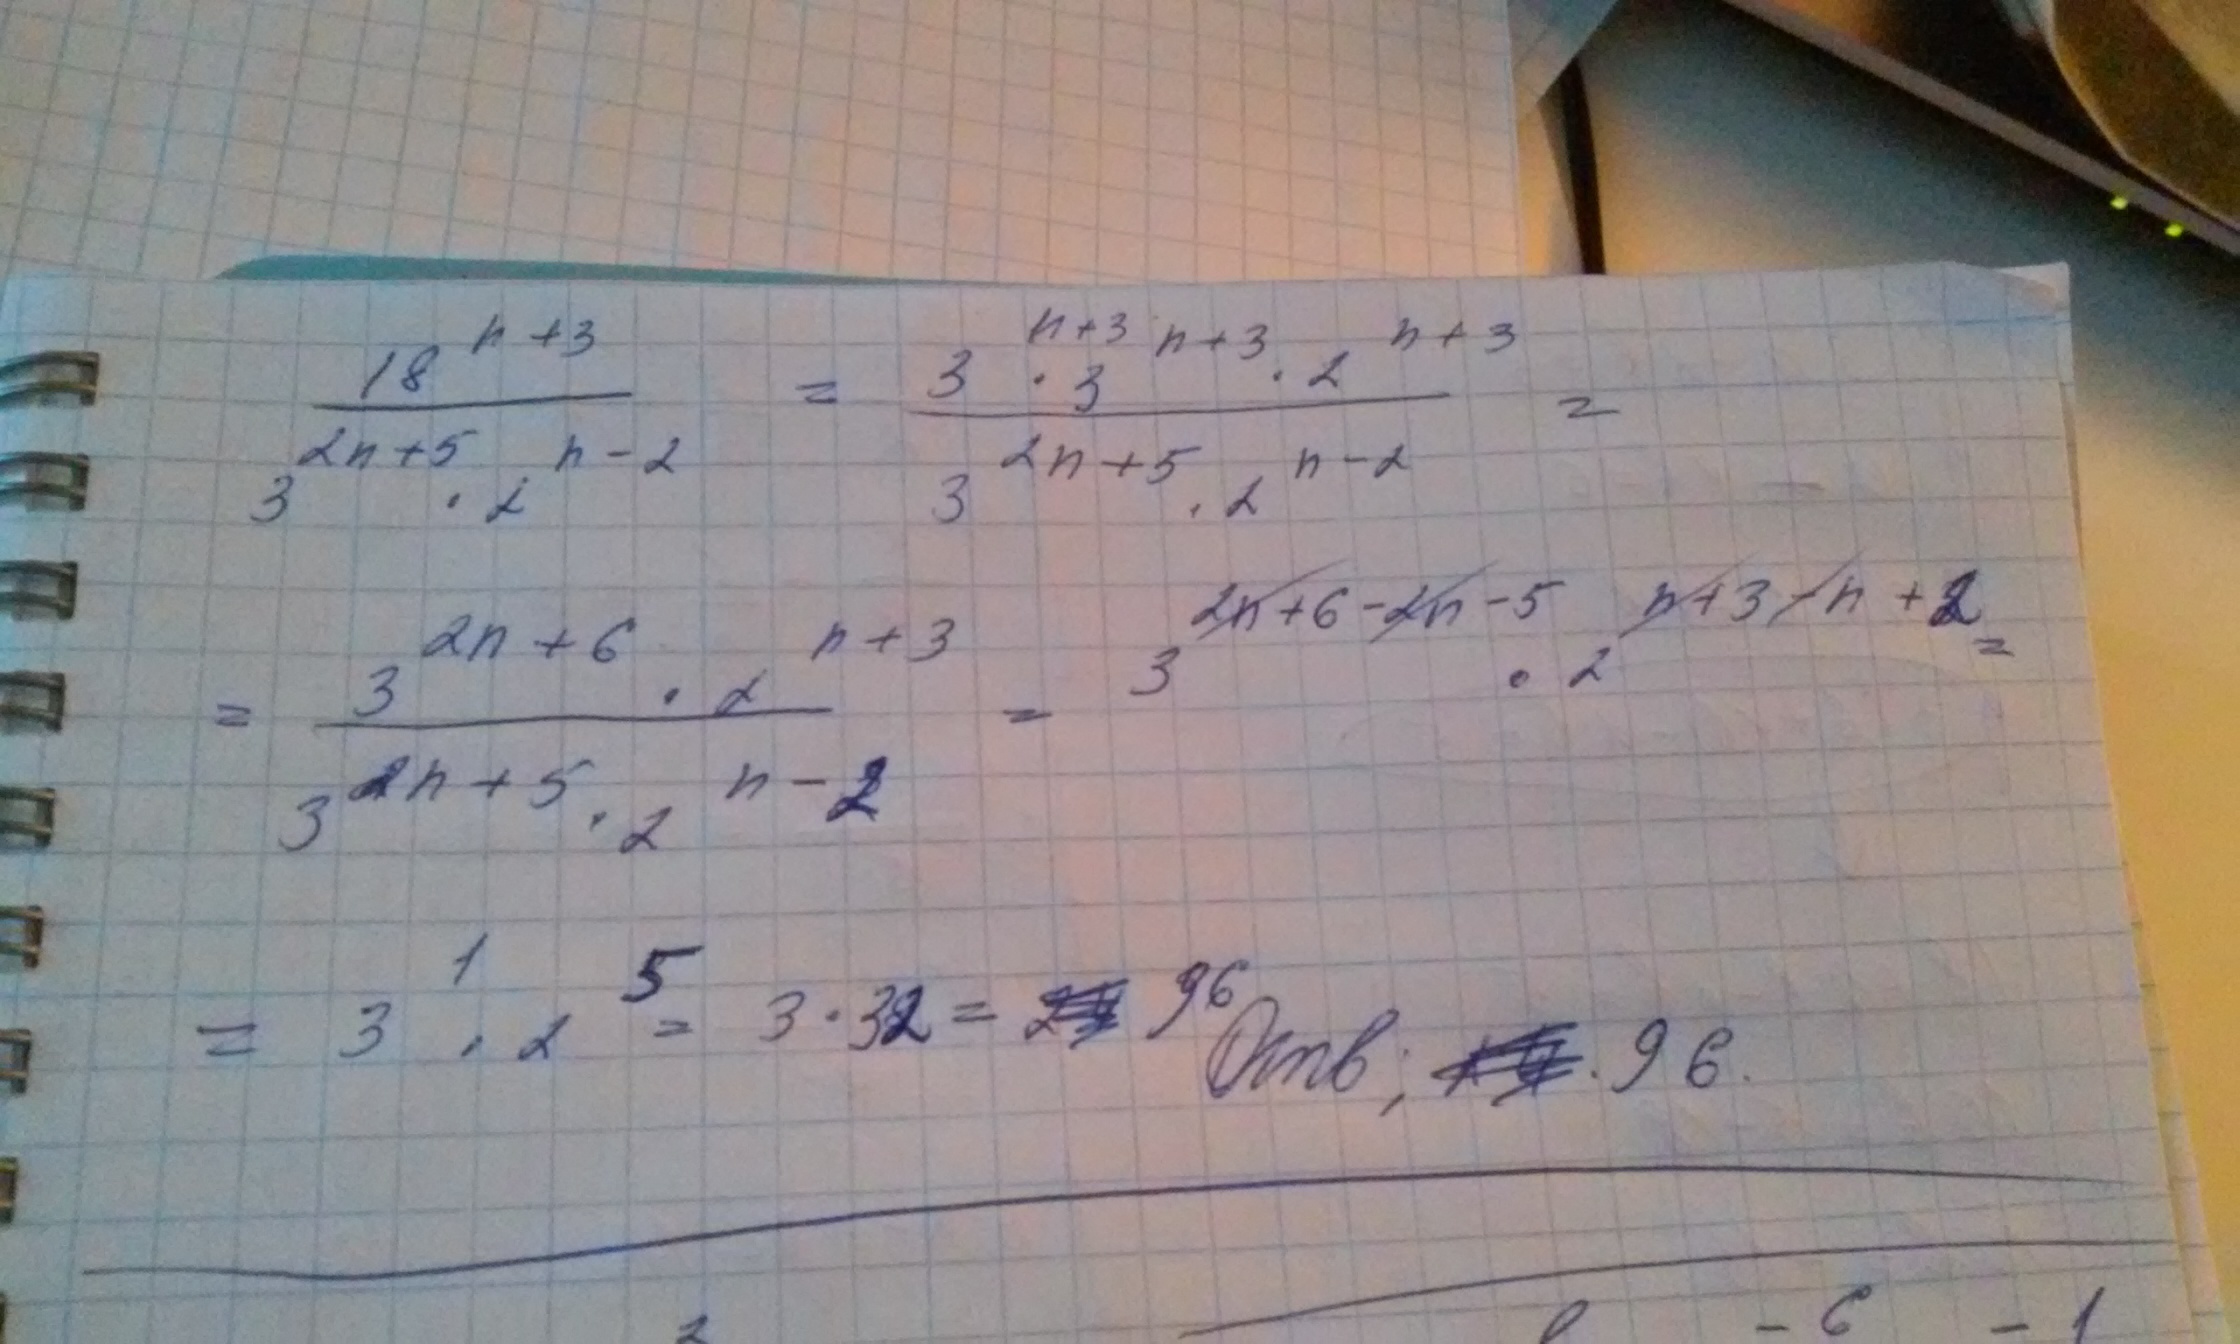 18^(n+3) / (3^(2n+5) · 2^(n-2)) = (3^(n+3) · 3^(n+3) · 2^(n+3)) / (3^(2n+5) · 2^(n-2)) =
= (3^(2n+6) · 2^(n+3)) / (3^(2n+5) · 2^(n-2)) = 3^(2n+6-2n-5) · 2^(n+3-n+2) =
= 3^1 · 2^5 = 3 · 32 = 96
Отв; 96.
2 - 6 - 1